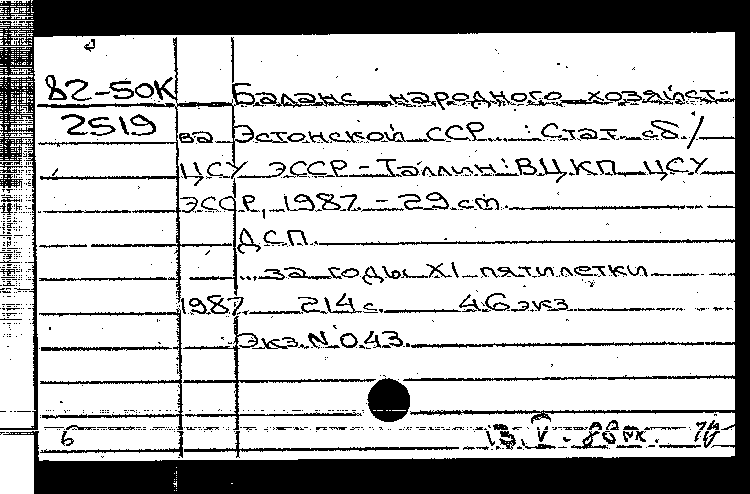 82-50К Баланс народного хозяйст-
2519 ва Эстонской ССР : Стат. сб./
ЦСУ ЭССР - Таллин: ВЦ КП ЦСУ
ЭССР, 1987. - 29 см.
ДСП.
... за годы XI пятилетки
1987. 214 с. 46 экз
Экз. N 043.
6 13. V. 88